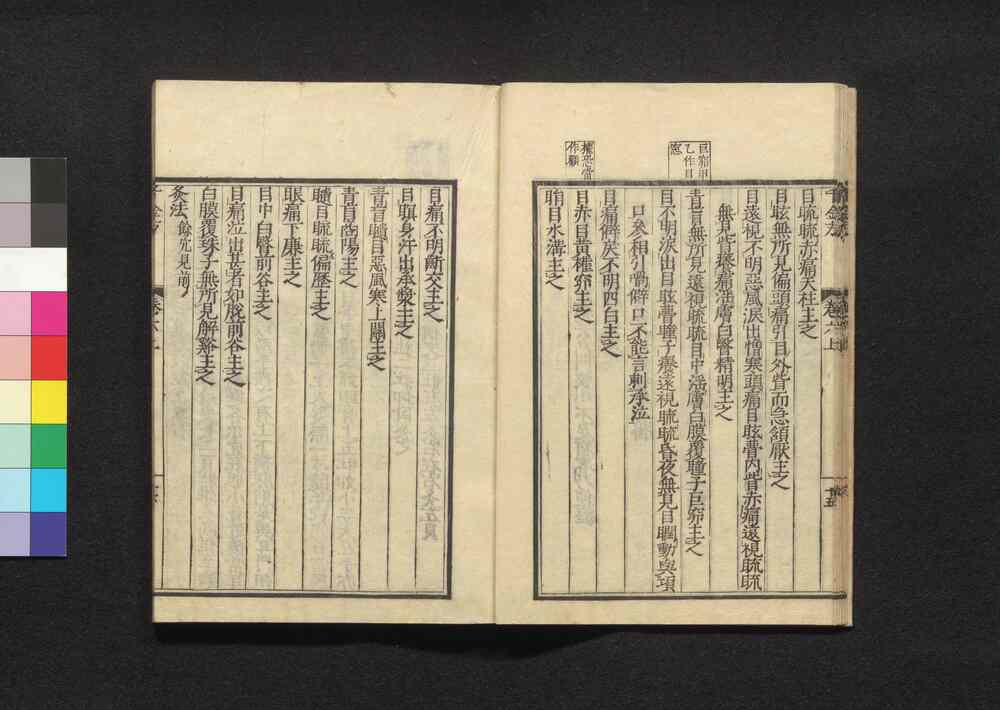 巨窌甲
乙作目
窓
據恐當
作顧
目䀮䀮赤痛天柱主之
目眩無所見偏頭痛引目外眥而急頷厭主之
目遠視不明惡風淚出憎寒頭痛目眩瞢內眥赤痛遠視䀮䀮
無見眥癢痛淫膚白翳精明主之
青盲無所見遠視䀮䀮目中淫膚白膜覆瞳子巨窌主之
目不明淚出目眩瞢瞳子癢遠視䀮䀮昏夜無見目瞤動與項
口參相引喎僻口不能言刺承泣
目痛僻戾不明四白主之
目赤目黃權窌主之
睊目水溝主之
卷六上
目痛不明齗交主之
目瞑身汗出承漿主之
青盲䁾目惡風寒上關主之
青盲商陽主之
䁾目䀮䀮偏歷主之
眼痛下廉主之
目中白翳前谷主之
目痛泣出甚者如脫前谷主之
白膜覆珠子無所見解谿主之
灸法餘穴見前